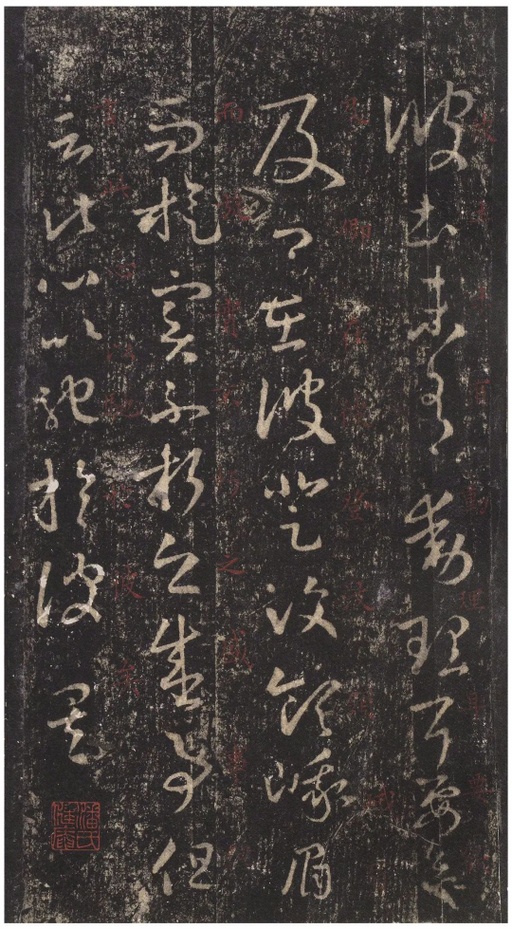 彼土未有動理耳要欲
及卿在彼登汶領峨眉
而旋實不朽之盛事但
言此心以馳於彼矣